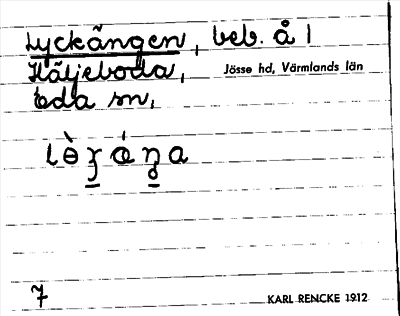 Lyckängen, beb. å 1
Häljeboda, Jösse hd, Värmlands län
Eda sn,
7 KARL RENCKE 1912